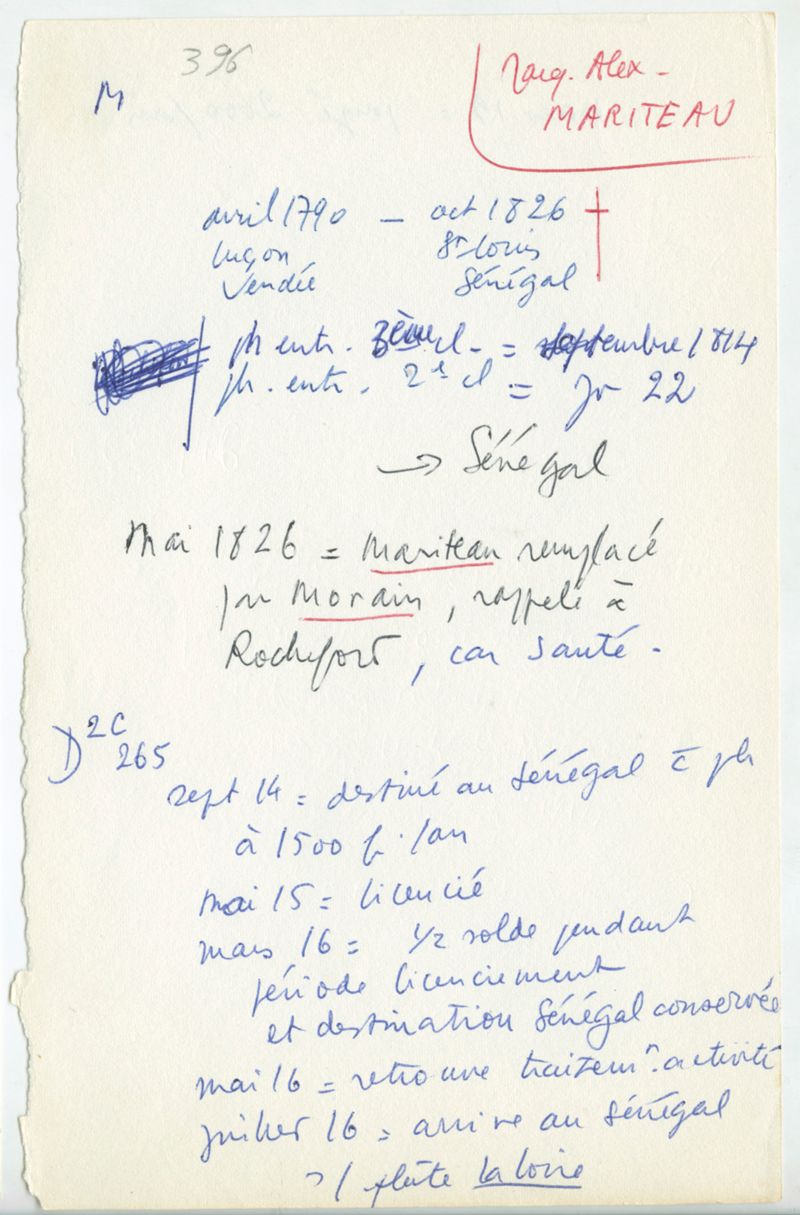 396
M
Jacq. Alex-
MARITEAU
avril 1790 — oct 1826 †
Luçon St Louis
Vendée Sénégal
ph entr. 3ème cl. = septembre 1814
ph. entr. 2e cl = Jr 22
→ Sénégal
Mai 1826 = Mariteau remplacé
par Morain, rappelé à
Rochefort, car santé.
D 2C
265
sept 14 = destiné au Sénégal c̄ ph
à 1500 f./an
Mai 15 = licencié
mars 16 = 1/2 solde pendant
période licenciement
et destination Sénégal conservée
mai 16 = retrouve traitemt. activité
juillet 16 = arrive au Sénégal
s/ flûte La Loire